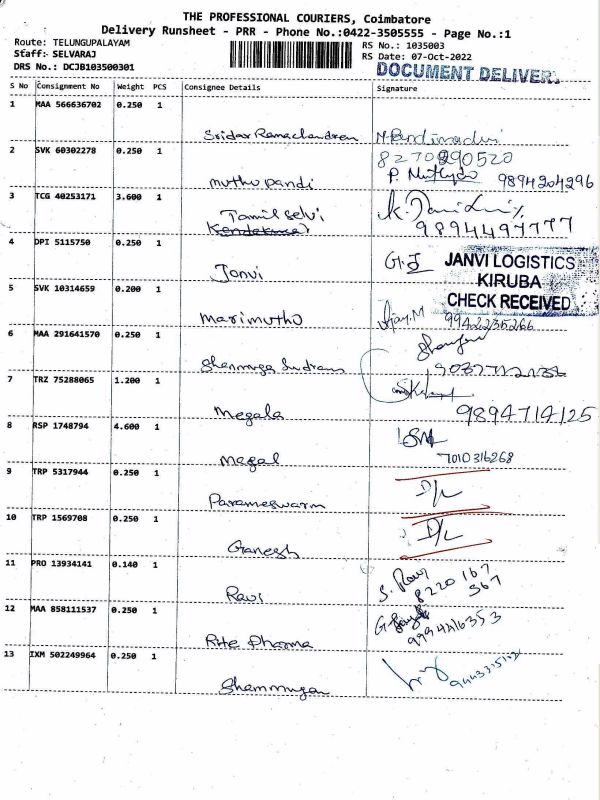 THE PROFESSIONAL COURIERS, Coimbatore
Delivery Runsheet - PRR - Phone No.:0422-3505555 - Page No.:1
Route: TELUNGUPALAYAM
RS No.: 1035003
Staff: SELVARAJ
RS Date: 07-Oct-2022
DRS No.: DCJB103500301
DOCUMENT DELIVER
S No Consignment No Weight PCS Consignee Details Signature
1 MAA 566636702 0.250 1
Sridar Ramachandren
8270890520
2 SVK 60302278 0.250 1
muthu pandi 9894204296
3 TCG 40253171 3.600 1
Tamil selvi
9894497777
4 DPI 5115750 0.250 1
Janvi G.J
JANVI LOGISTICS
KIRUBA
CHECK RECEIVED
5 SVK 10314659 0.200 1
marimutho Vijay.M
6 MAA 291641570 0.250 1
Shanmuga Sundram
7 TRZ 75288065 1.200 1
Megala 9894714125
8 RSP 1748794 4.600 1
megal 7010316268
9 TRP 5317944 0.250 1
Parameswarm D/L
10 TRP 1569708 0.250 1
Ganesh D/L
11 PRO 13934141 0.140 1
Ravi S. Ravi
8220 167
567
12 MAA 858111537 0.250 1
Rite Pharma
9994416353
13 IXM 502249964 0.250 1
Shanmugan